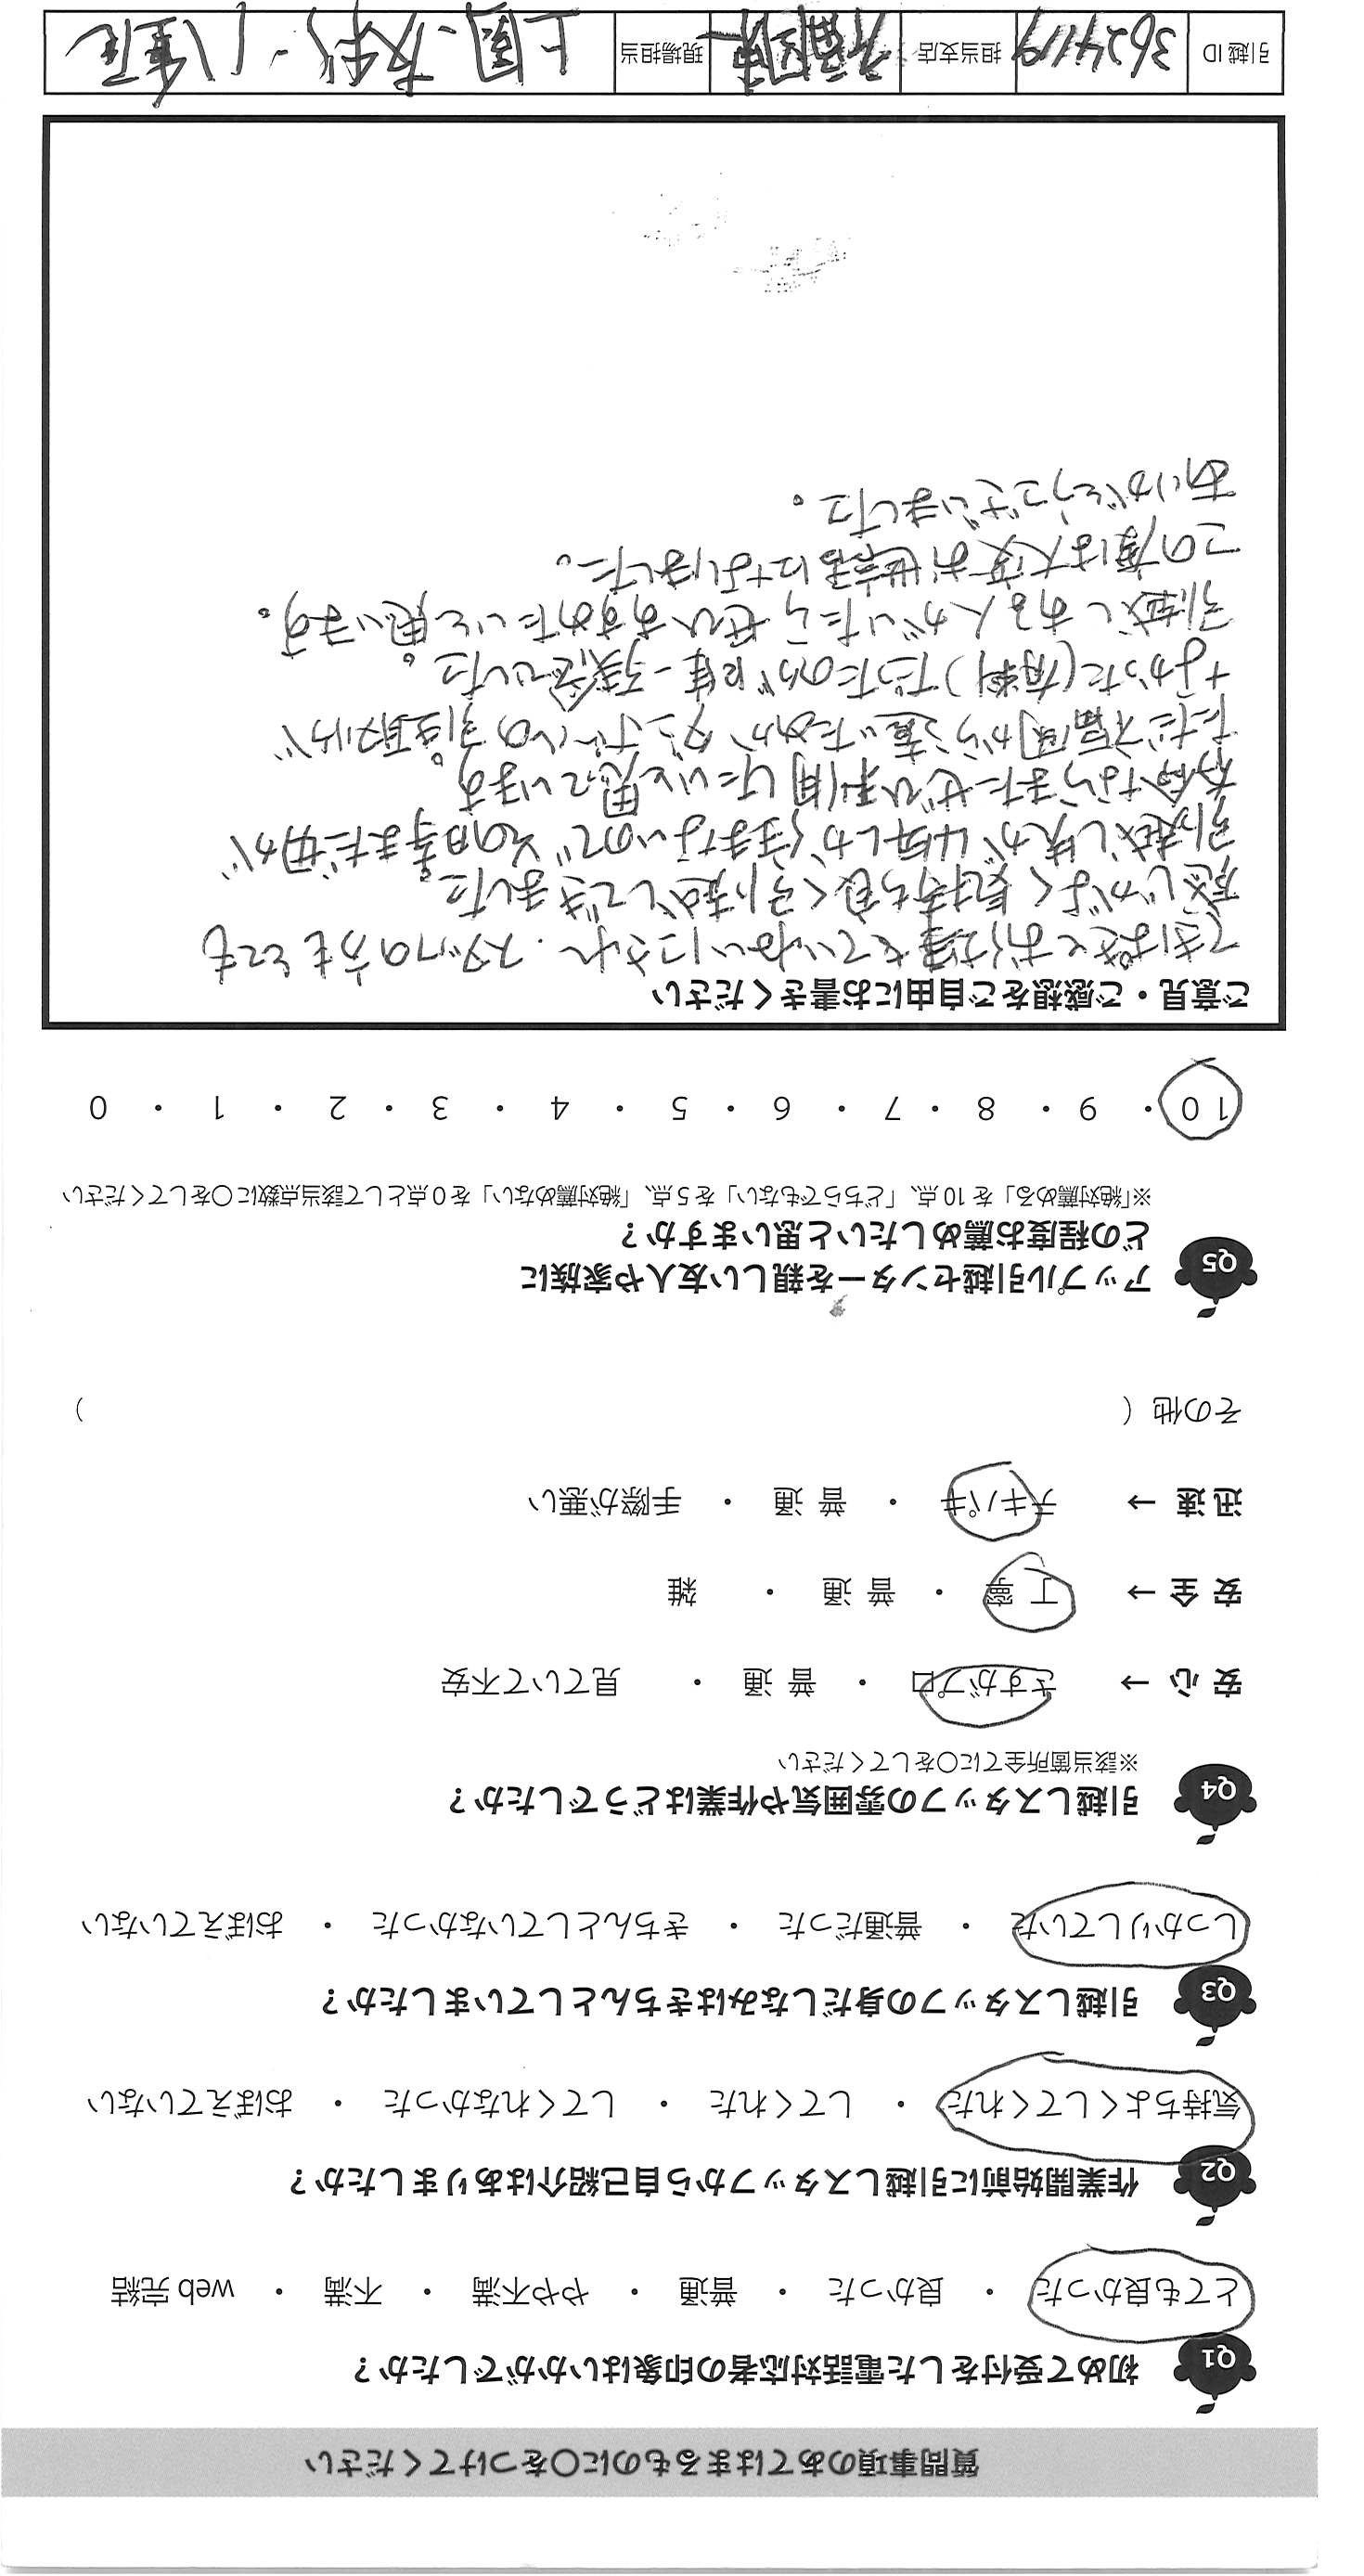 質問事項のあてはまるものに〇をつけてください
Q1 初めて受付をした電話対応者の印象はいかがでしたか？
とても良かった ・ 良かった ・ 普通 ・ やや不満 ・ 不満 ・ web 完結
Q2 作業開始前に引越しスタッフから自己紹介はありましたか？
気持ちよくしてくれた ・ してくれた ・ してくれなかった ・ おぼえていない
Q3 引越しスタッフの身だしなみはきちんとしていましたか？
しっかりしていた ・ 普通だった ・ きちんとしていなかった ・ おぼえていない
Q4 引越しスタッフの雰囲気や作業はどうでしたか？
※該当箇所全てに〇をしてください
安 心 → さすがプロ ・ 普 通 ・ 見ていて不安
安 全 → 丁 寧 ・ 普 通 ・ 雑
迅 速 → テキパキ ・ 普 通 ・ 手際が悪い
その他（ ）
Q5 アップル引越センターを親しい友人や家族に
どの程度お薦めしたいと思いますか？
※「絶対薦める」を 10 点、「どちらでもない」を 5 点、「絶対薦めない」を 0 点として該当点数に〇をしてください
10 ・ 9 ・ 8 ・ 7 ・ 6 ・ 5 ・ 4 ・ 3 ・ 2 ・ 1 ・ 0
ご意見・ご感想をご自由にお書きください
てきぱきとお仕事もていねいにされ、スタッフの方もとても
感じがよく気持ち良く引越しできました。
引越し先が4年しか住まないのでその時まだ切が
有今ならまたぜひ利用したいと思っています。
ただ福岡から遠かったためかダンボールの引き取りが
なかった(有料)だったのが唯一残念でした。
引越しある人がいたらぜひおすすめたいと思います。
この度は大変お世話になりました。
ありがとうございました。
引越 ID 3624119 担当支店 福岡東 現場担当 上園、友利、八重尾